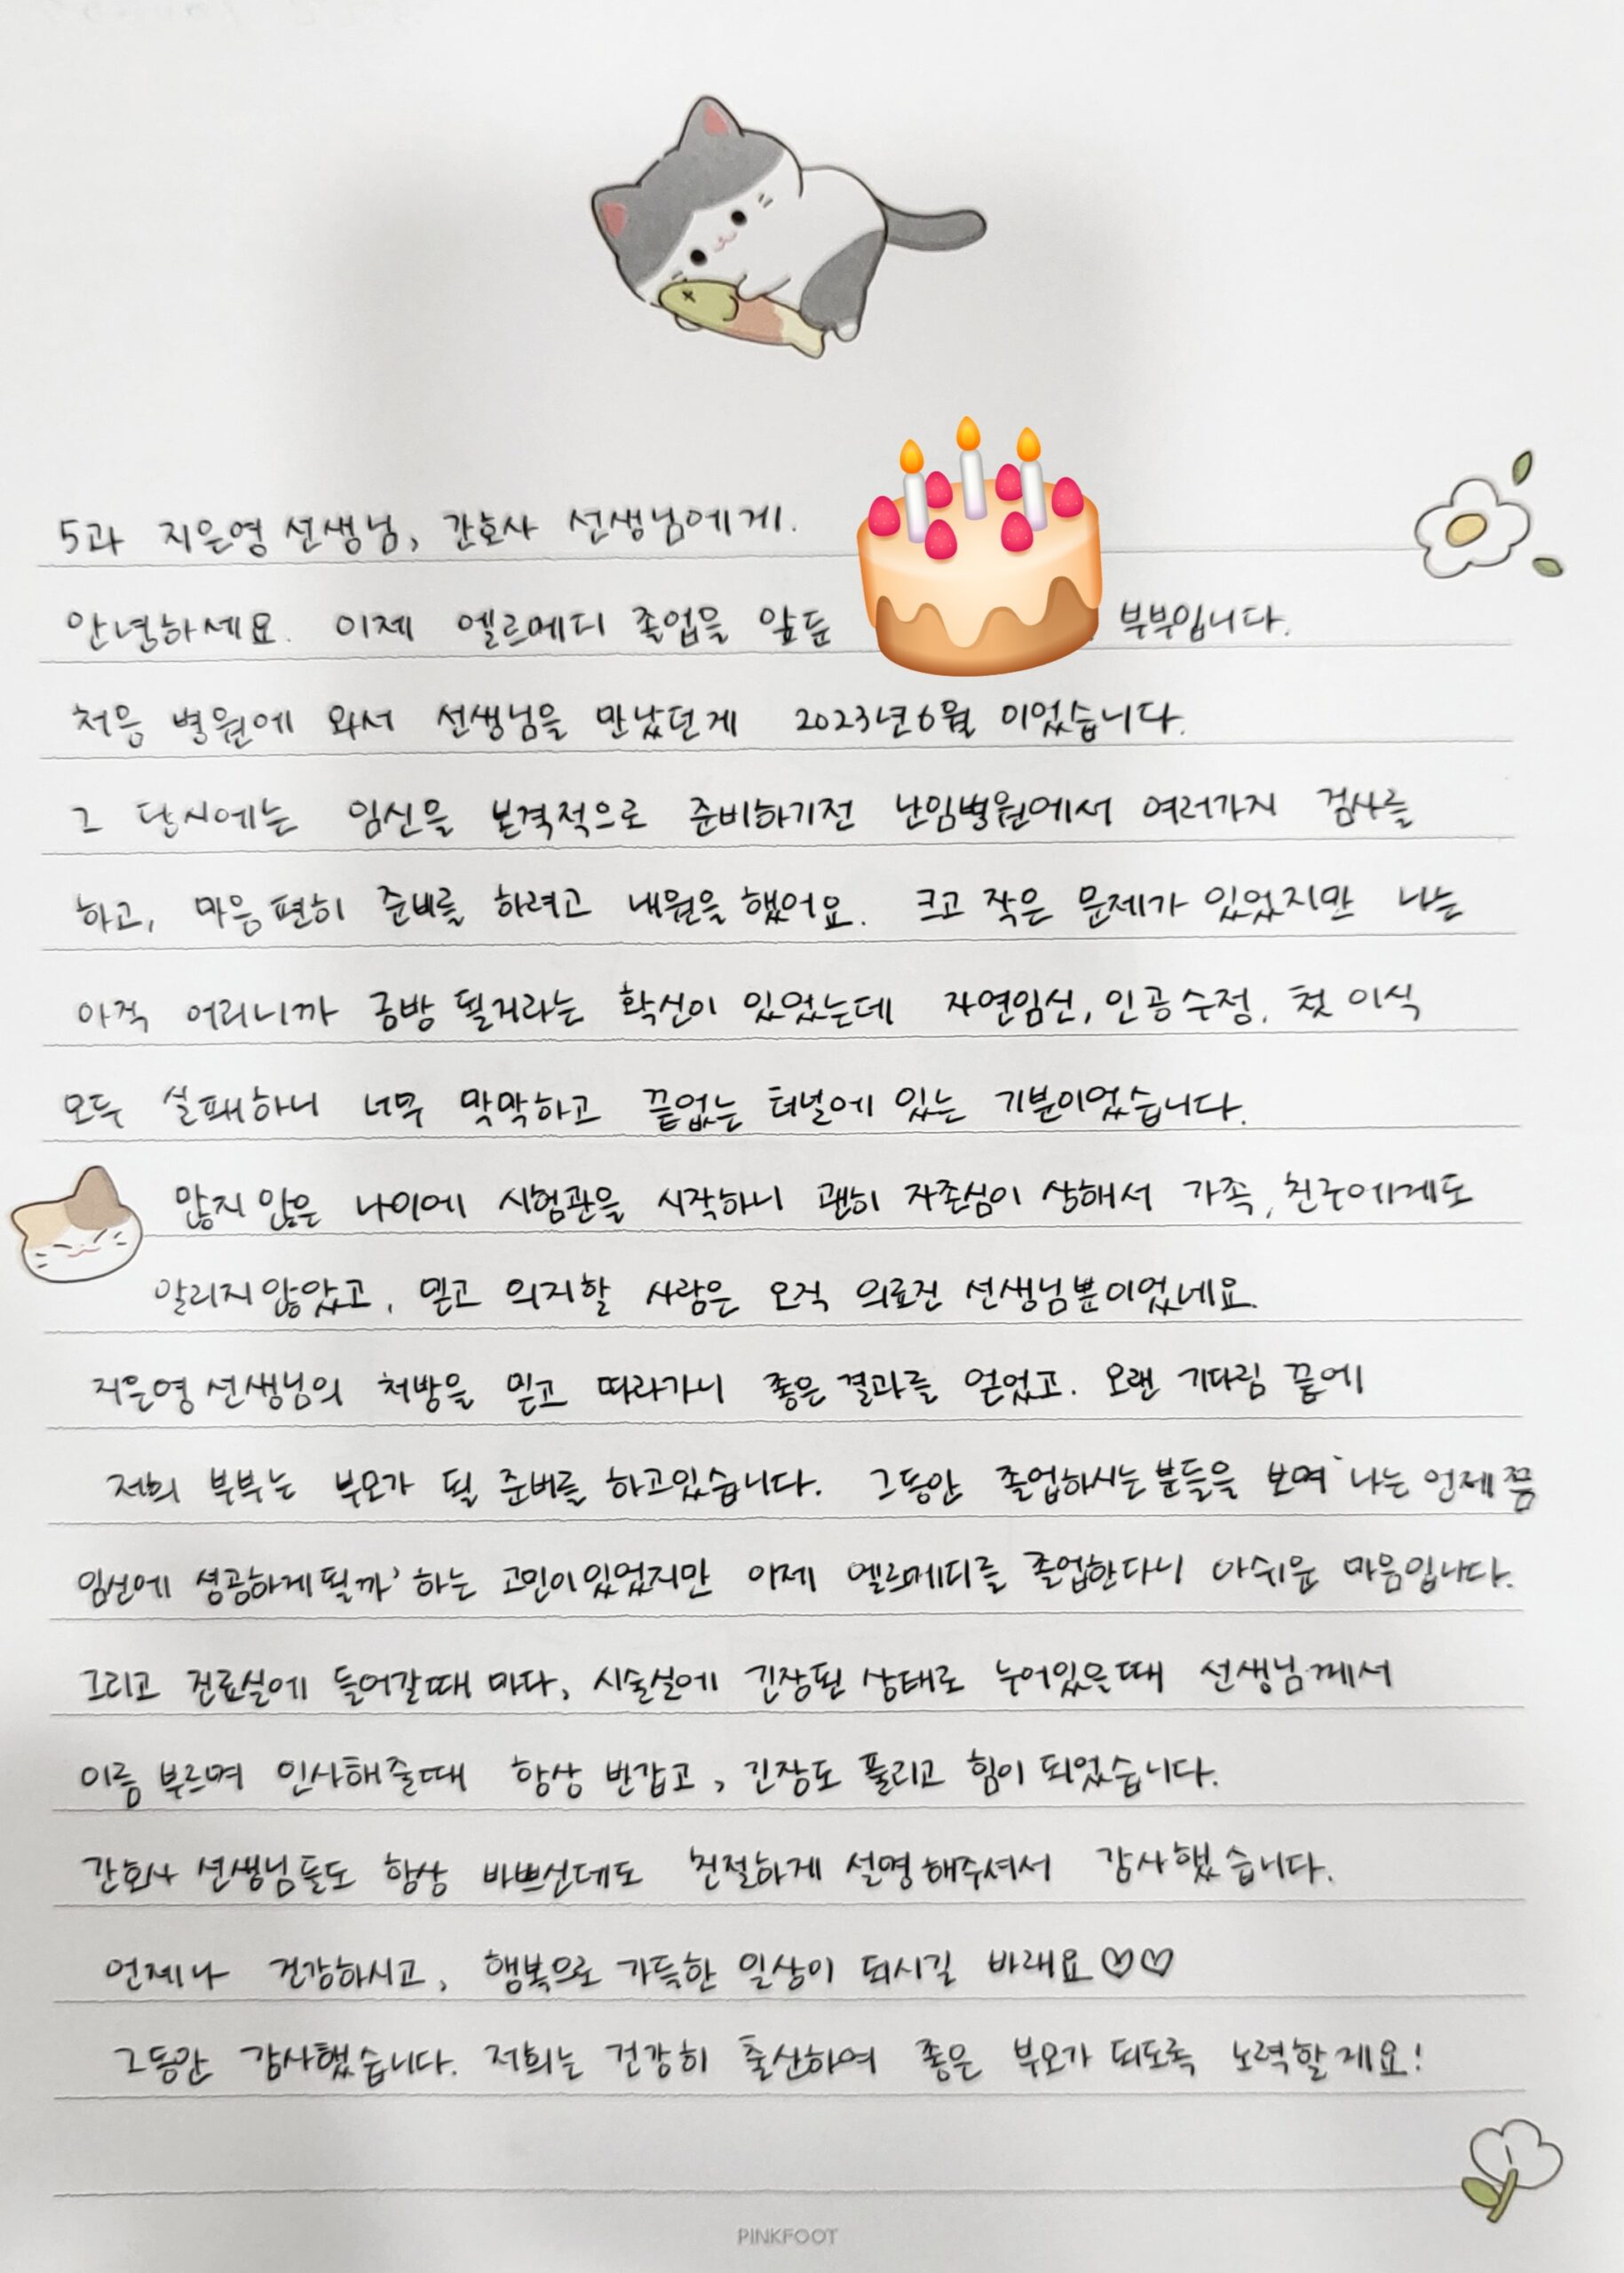 5과 지은영 선생님, 간호사 선생님에게.
안녕하세요. 이제 엘르메디 졸업을 앞둔 부부입니다.
처음 병원에 와서 선생님을 만났던게 2023년 6월 이었습니다.
그 당시에는 임신을 본격적으로 준비하기전 난임병원에서 여러가지 검사를
하고, 마음 편히 준비를 하려고 내원을 했어요. 크고 작은 문제가 있었지만 나는
아직 어리니까 금방 될거라는 확신이 있었는데 자연임신, 인공수정, 첫 이식
모두 실패하니 너무 막막하고 끝없는 터널에 있는 기분이었습니다.
많지 않은 나이에 시험관을 시작하니 괜히 자존심이 상해서 가족, 친구에게도
알리지 않았고, 믿고 의지할 사람은 오직 의료진 선생님뿐이었네요.
지은영 선생님의 처방을 믿고 따라가니 좋은 결과를 얻었고. 오랜 기다림 끝에
저희 부부는 부모가 될 준비를 하고있습니다. 그동안 졸업하시는 분들을 보며 '나는 언제쯤
임신에 성공하게될까' 하는 고민이 있었지만 이제 엘르메디를 졸업한다니 아쉬운 마음입니다.
그리고 진료실에 들어갈때 마다, 시술실에 긴장된 상태로 누어있을때 선생님께서
이름 부르며 인사해줄때 항상 반갑고, 긴장도 풀리고 힘이 되었습니다.
간호사 선생님들도 항상 바쁘신데도 친절하게 설명해주셔서 감사했습니다.
언제나 건강하시고, 행복으로 가득한 일상이 되시길 바래요♡♡
그동안 감사했습니다. 저희는 건강히 출산하여 좋은 부모가 되도록 노력할게요!
PINKFOOT